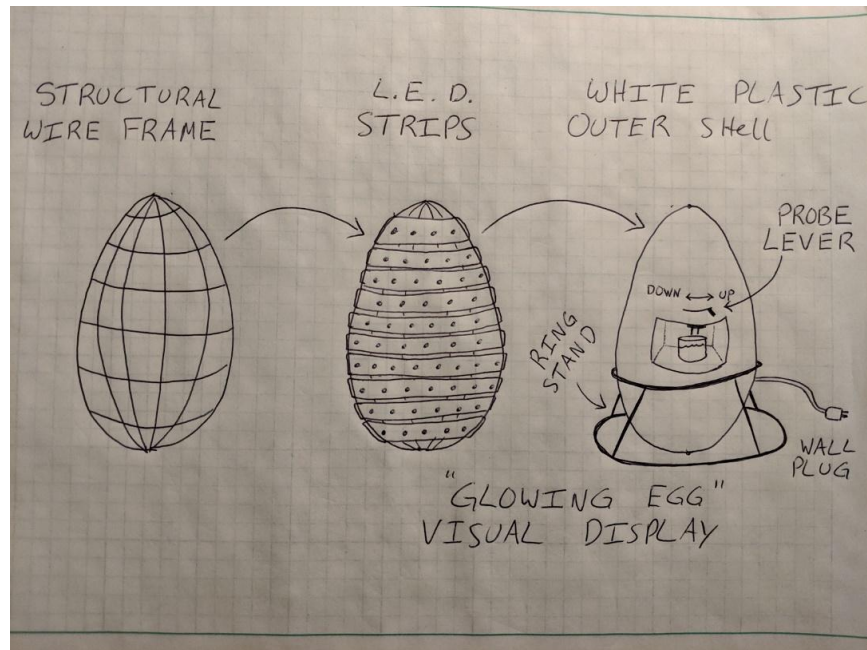 STRUCTURAL
WIRE FRAME
L.E.D.
STRIPS
WHITE PLASTIC
OUTER SHell
PROBE
LEVER
DOWN ↔ UP
RING
STAND
WALL
PLUG
"GLOWING EGG"
VISUAL DISPLAY